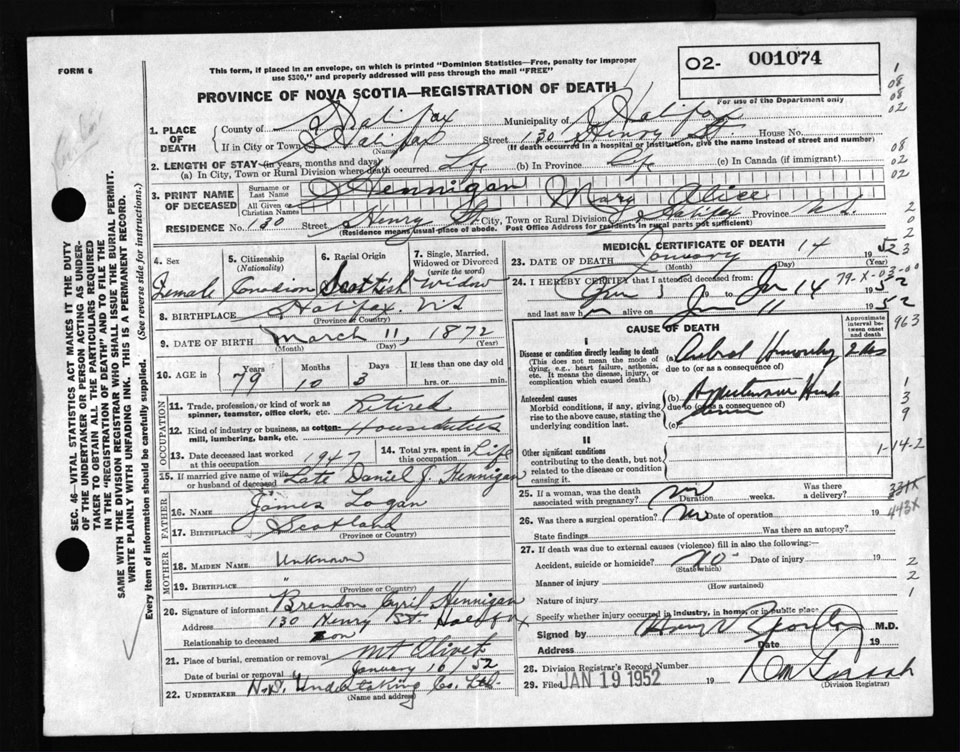 FORM 6
This form, if placed in an envelope, on which is printed "Dominion Statistics—Free, penalty for improper
use $300," and properly addressed will pass through the mail "FREE"
PROVINCE OF NOVA SCOTIA—REGISTRATION OF DEATH
O2- 001074
For use of the Department only
1. PLACE OF DEATH
County of Halifax Municipality of Halifax
If in City or Town Halifax Street 130 Henry St. House No.
(Name) (If death occurred in a hospital or institution, give the name instead of street and number)
2. LENGTH OF STAY (in years, months and days)
(a) In City, Town or Rural Division where death occurred Life (b) In Province Life (c) In Canada (if immigrant)
3. PRINT NAME OF DECEASED
Surname or Last Name Hennigan
All Given or Christian Names Mary Alice
RESIDENCE No. 130 Street Henry St. City, Town or Rural Division Halifax Province N.S.
(Residence means usual place of abode. Post Office Address for residents in rural parts not sufficient)
4. Sex
Female
5. Citizenship (Nationality)
Canadian
6. Racial Origin
Scottish
7. Single, Married, Widowed or Divorced (write the word)
Widow
8. BIRTHPLACE Halifax, N.S
(Province or Country)
9. DATE OF BIRTH March 11, 1872
(Month) (Day) (Year)
10. AGE in Years Months Days If less than one day
79 10 3 hrs. or min.
OCCUPATION
11. Trade, profession, or kind of work as spinner, teamster, office clerk, etc. Retired
12. Kind of industry or business, as cotton mill, lumbering, bank, etc. Houseduties
13. Date deceased last worked at this occupation 1947
14. Total yrs. spent in this occupation Life
15. If married give name of wife or husband of deceased Late Daniel J. Hennigan
FATHER
16. NAME James Logan
17. BIRTHPLACE Scotland
(Province or Country)
MOTHER
18. MAIDEN NAME Unknown
19. BIRTHPLACE "
(Province or Country)
20. Signature of informant Brendon Cyril Hennigan
Address 130 Henry St. Halifax
Relationship to deceased Son
21. Place of burial, cremation or removal Mt Olivet
Date of burial or removal January 16/52
22. UNDERTAKER N.S. Undertaking Co. Ltd.
(Name and address)
MEDICAL CERTIFICATE OF DEATH
23. DATE OF DEATH January 14 1952
(Month) (Day)
24. I HEREBY CERTIFY that I attended deceased from:
19 to Jan 14 1952
and last saw h alive on Jan 11 1952
CAUSE OF DEATH
Approximate interval between onset and death
I
Disease or condition directly leading to death
(This does not mean the mode of dying, e.g., heart failure, asthenia, etc. It means the disease, injury, or complication which caused death.)
(a)
due to (or as a consequence of)
Antecedent causes
Morbid conditions, if any, giving rise to the above cause, stating the underlying condition last.
(b)
due to (or as a consequence of)
(c)
II
Other significant conditions
contributing to the death, but not related to the disease or condition causing it.
25. If a woman, was the death associated with pregnancy? no Duration weeks. Was there a delivery?
26. Was there a surgical operation? no Date of operation 19
State findings Was there an autopsy?
27. If death was due to external causes (violence) fill in also the following:—
Accident, suicide or homicide? No Date of injury 19
(State which)
Manner of injury
(How sustained)
Nature of injury
Specify whether injury occurred in industry, in home, or in public place
Signed by M.D.
Address Date 19
28. Division Registrar's Record Number
29. Filed JAN 19 1952 19
(Division Registrar)
SEC. 46—VITAL STATISTICS ACT MAKES IT THE DUTY
OF THE UNDERTAKER OR PERSON ACTING AS UNDER-
TAKER TO OBTAIN ALL THE PARTICULARS REQUIRED
IN THE "REGISTRATION OF DEATH" AND TO FILE THE
SAME WITH THE DIVISION REGISTRAR WHO SHALL ISSUE THE BURIAL PERMIT.
WRITE PLAINLY WITH UNFADING INK. THIS IS A PERMANENT RECORD.
Every item of information should be carefully supplied. (See reverse side for instructions.)
1
08
08
02
08
02
02
79-X-03-00
963
1
3
9
1-14-2
443X
2
2
1